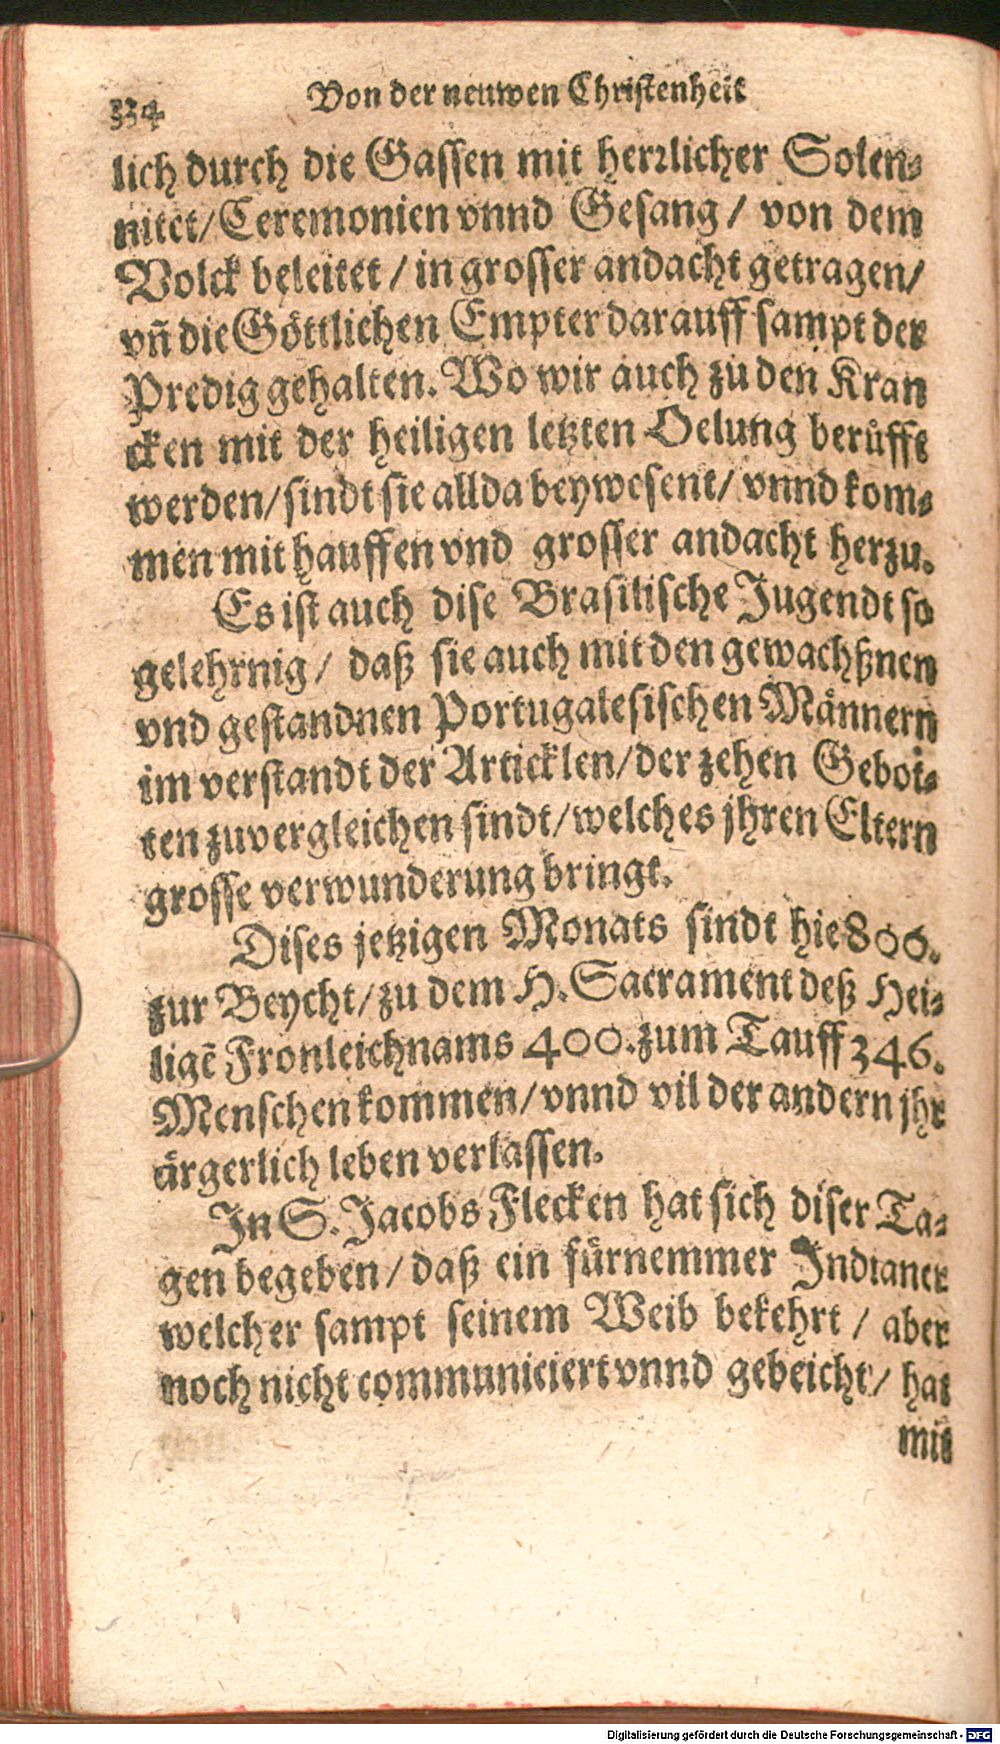 334 Von der neuwen Christenheit
lich durch die Gassen mit herꝛlicher Solen-
nitet/ Ceremonien vnnd Gesang/ von dem
Volck beleitet/ in grosser andacht getragen/
vñ die Göttlichen Empter darauff sampt der
Predig gehalten. Wo wir auch zu den Kran
cken mit der heiligen letzten Oelung berůfft
werden/ sindt sie allda beywesent/ vnnd kom-
men mit hauffen vnd grosser andacht herzu.
Es ist auch dise Brasilische Jugendt so
gelehrnig/ daß sie auch mit den gewachßnen
vnd gestandnen Portugalesischen Männern
im verstandt der Articklen/ der zehen Gebot-
ten zuvergleichen sindt/ welches jhren Eltern
grosse verwunderung bringt.
Dises jetzigen Monats sindt hie 800.
zur Beycht/ zu dem H. Sacrament deß Hei-
ligẽ Fronleichnams 400. zum Tauff 346.
Menschen kommen/ vnnd vil der andern jhr
ärgerlich leben verlassen.
In S. Jacobs Flecken hat sich diser Ta-
gen begeben/ daß ein fürnemmer Indianer
welcher sampt seinem Weib bekehrt / aber
noch nicht communiciert vnnd gebeicht/ hat
mit
Digitalisierung gefördert durch die Deutsche Forschungsgemeinschaft - DFG